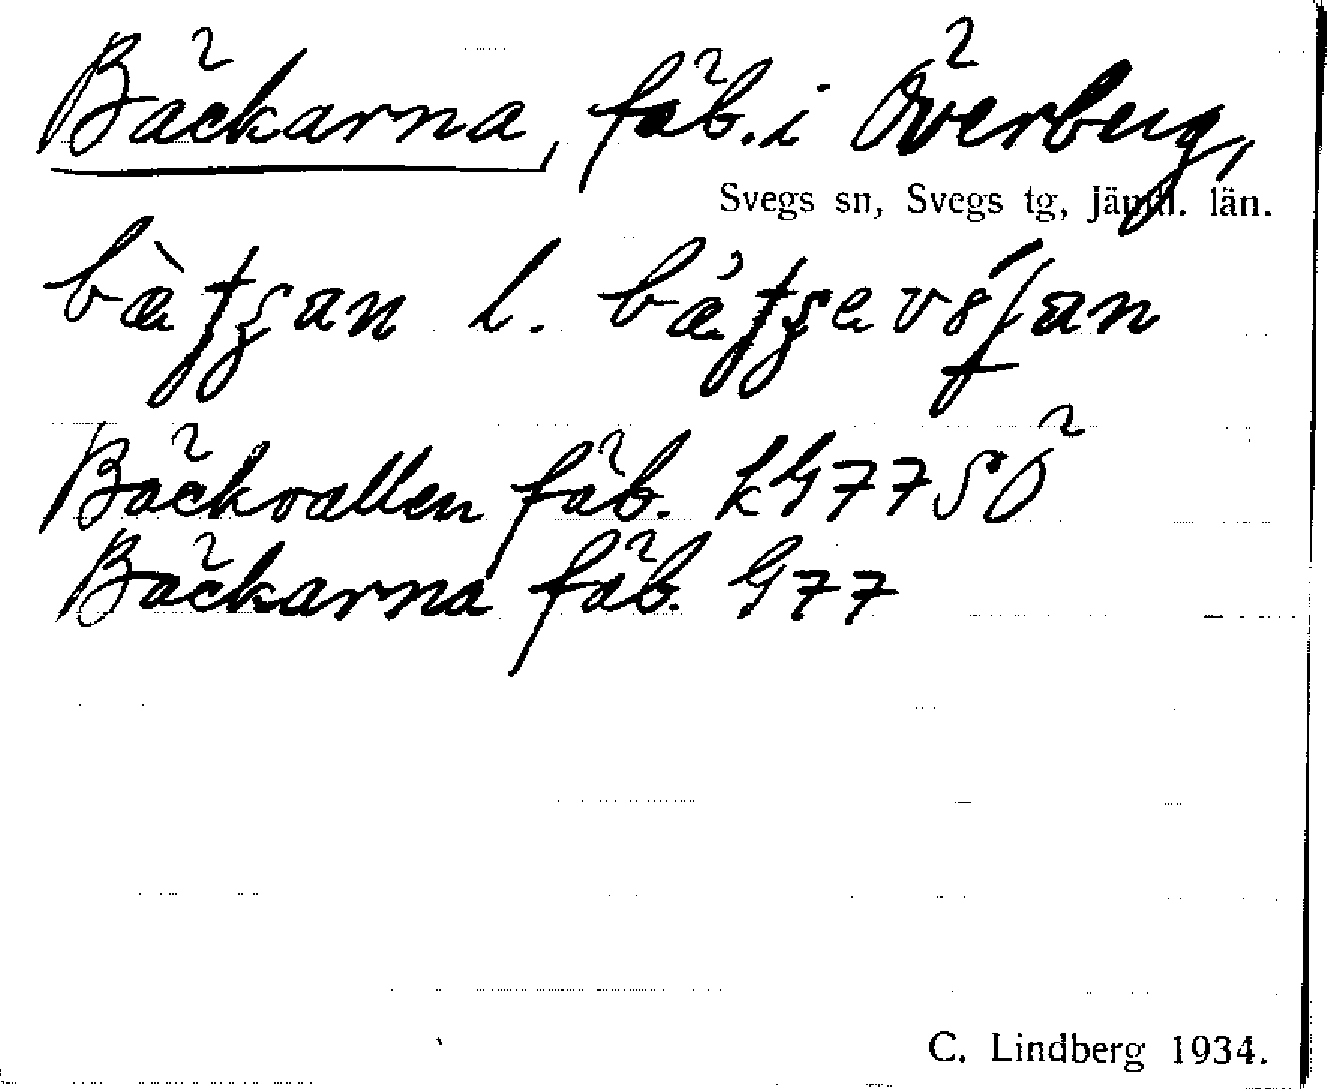 Bäckarna, fäb. i Överberg,
Svegs sn, Svegs tg, Jämtl. län.
l.
Bäckvallen fäb. k G77SÖ
Bäckarna fäb. G77
C. Lindberg 1934.